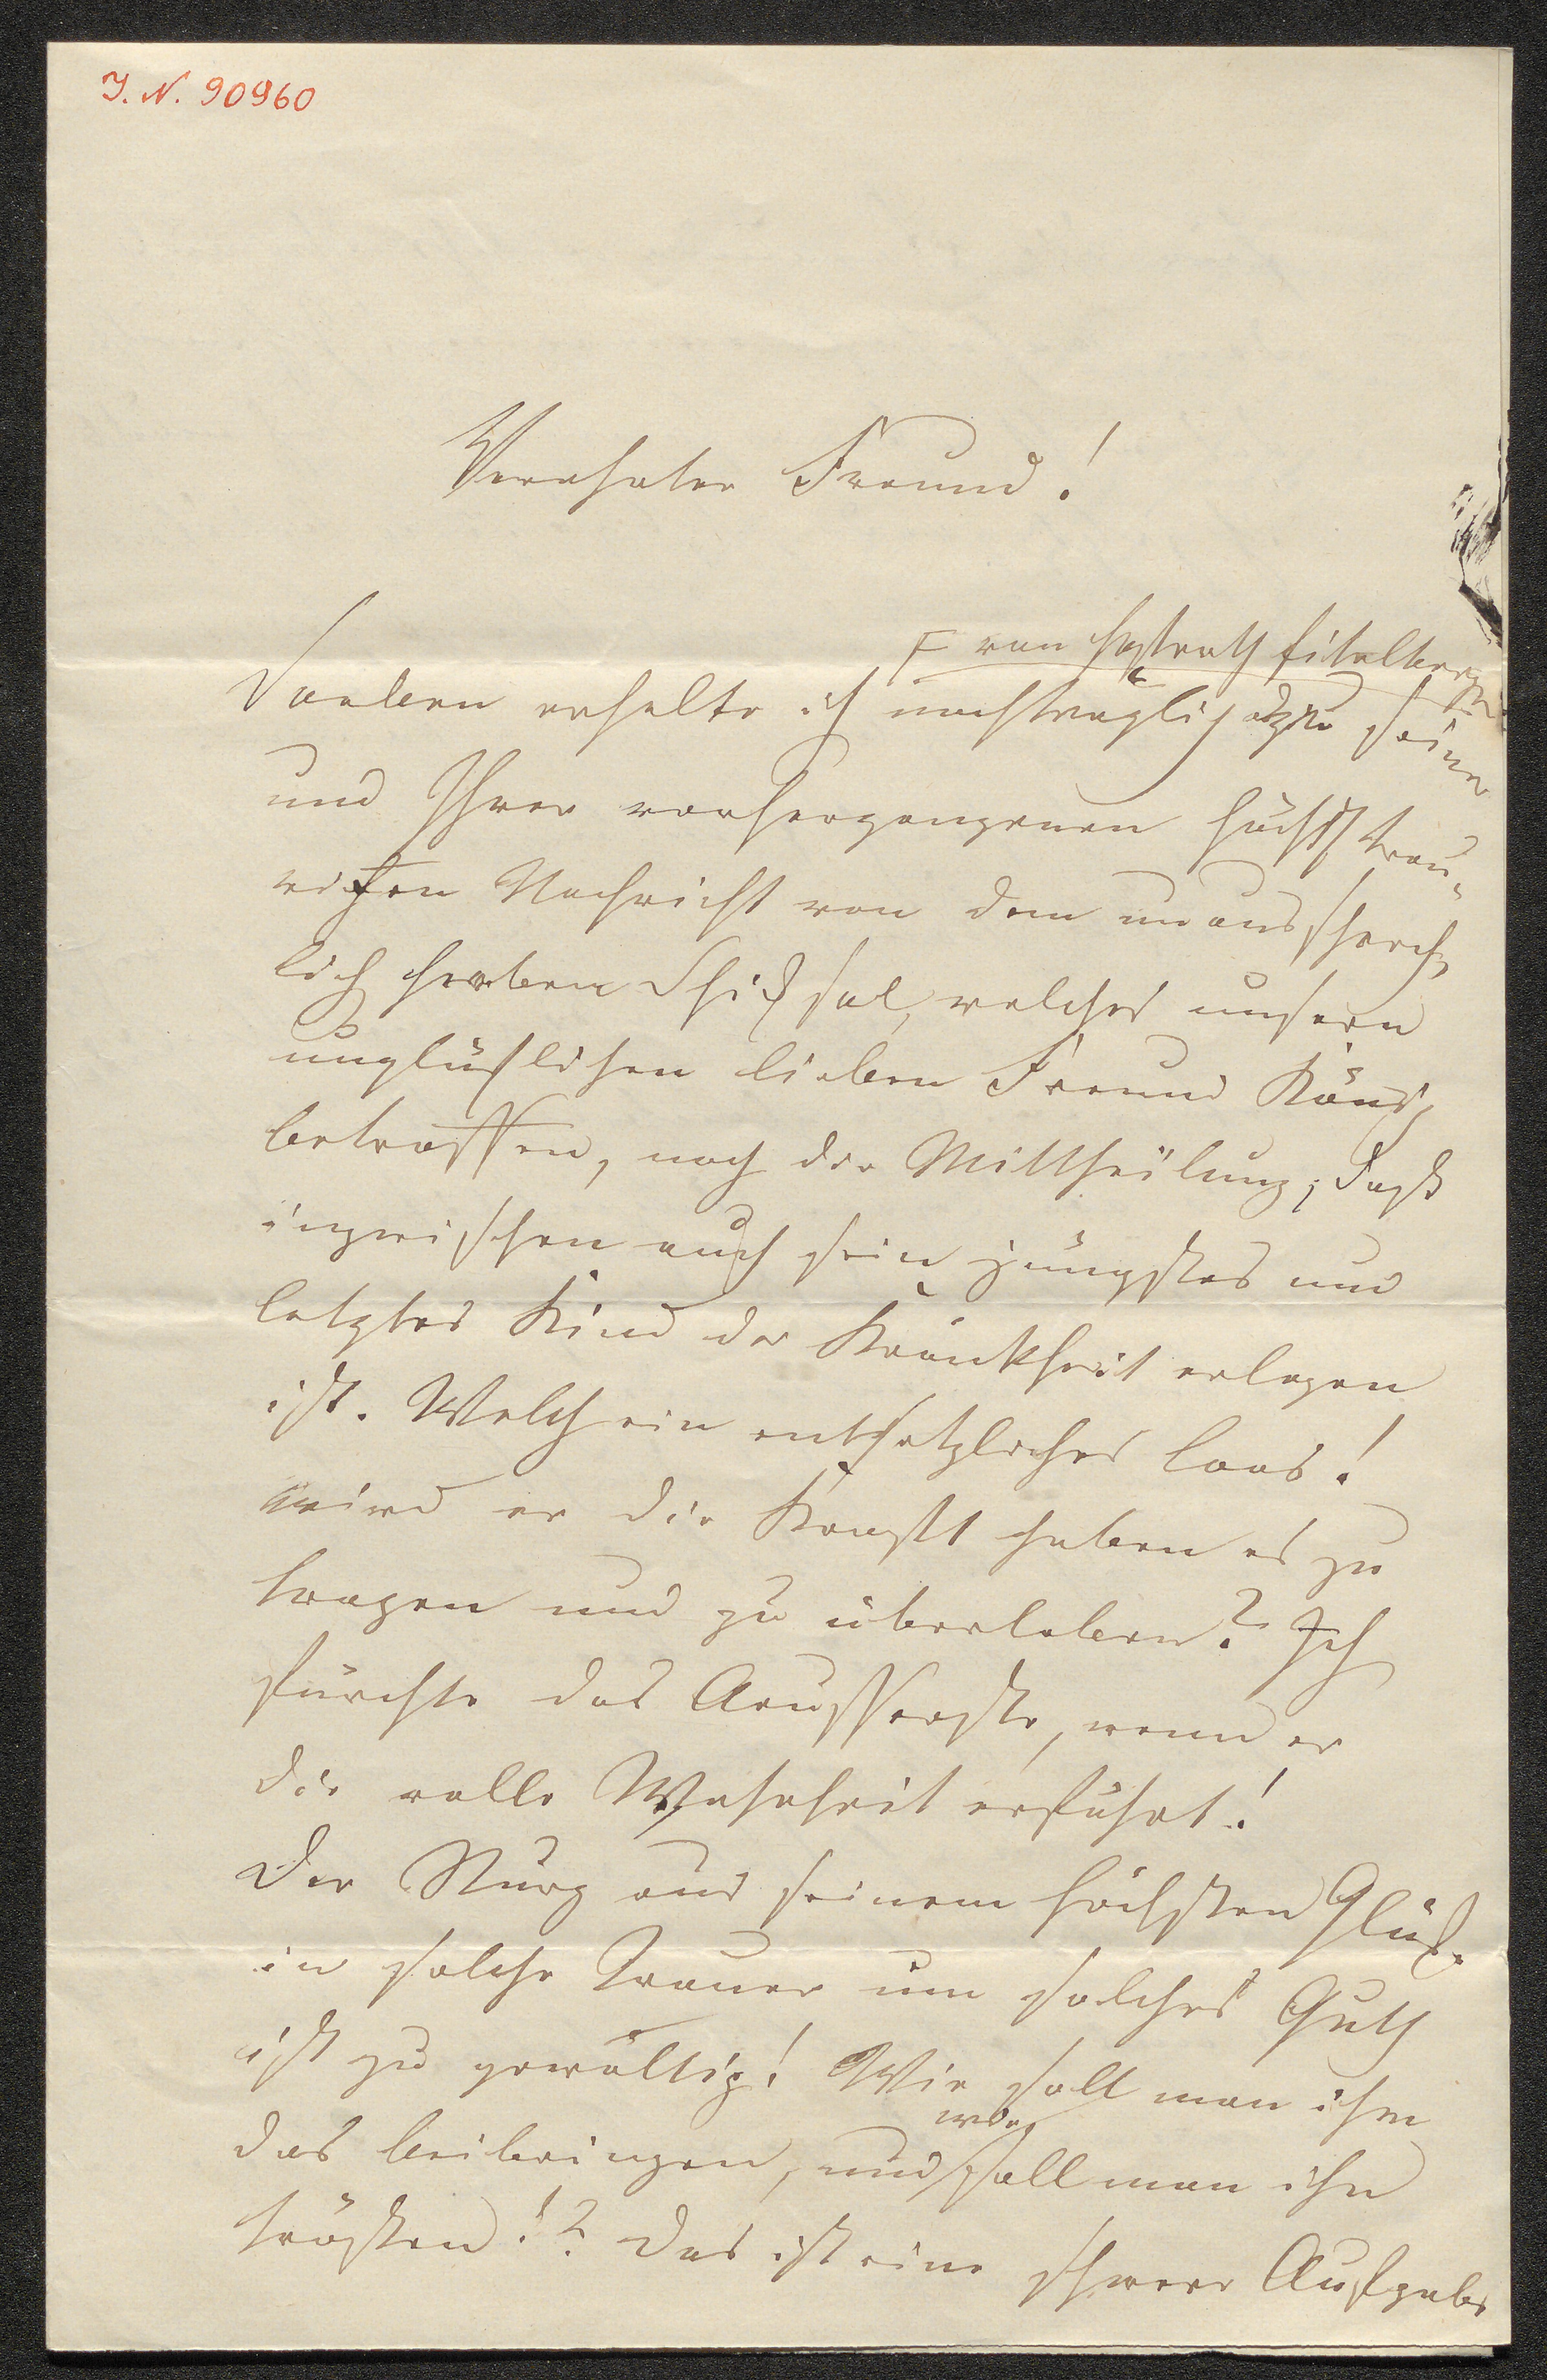 I. N. 90960
Verehrter Freund!
F von Hofrath Eitelberger
Soeben erhalte ich nachträglich zu seiner
und Ihrer vorhergangenen höchst trau-
rigen Nachricht von dem unaussprech-
lich herben Schicksal, welches unsern
unglücklichen lieben Freund König
betroffen, noch die Mittheilung, daß
inzwischen auch sein jüngstes und
letztes Kind der Krankheit erlegen
ist. Welch ein entsetzliches Loos!
wird er die Kraft haben es zu
tragen und zu überleben? Ich
fürchte das Aeusserste, wenn er
die volle Wahrheit erfährt!
Der Sturz aus seinem höchsten Glück
in solche Trauer um solches Guth
ist zu gewaltig! Wie soll man ihm
wie
das beibringen, und soll man ihn
trösten!? Das ist eine schwere Aufgabe